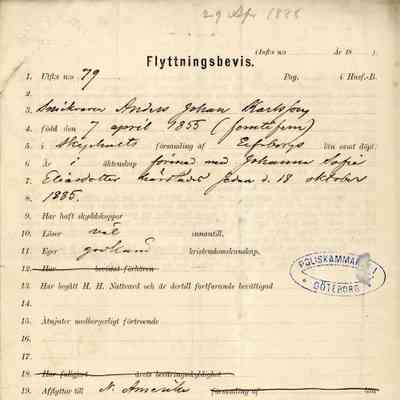 29 Apr 1888
(Inflx n:o År 18 ).
Flyttningsbevis.
1. Utflx n:o 79 Pag. i Husf.-B.
2.
3. Snickaren Anders Johan Karlsson
4. född den 7 april 1855 (femtifem)
5. i församling af Elfsborgs län samt döpt.
6. Är i äktenskap förenad med Johanna Sofia
7. Eliasdotter härstädes sedan d. 18 oktober
8. 1885.
9. Har haft skyddskoppor
10. Läser väl innantill.
11. Eger godkänd kristendomskunskap.
12. Har bevistat förhören
13. Har begått H. H. Nattvard och är dertill fortfarande berättigad
14.
15. Åtnjuter medborgerligt förtroende
16.
17.
18. Har fullgjort årets beväringsskyldighet
19. Afflyttar till N. Amerika församling af län
POLISKAMMAREN I
GÖTEBORG